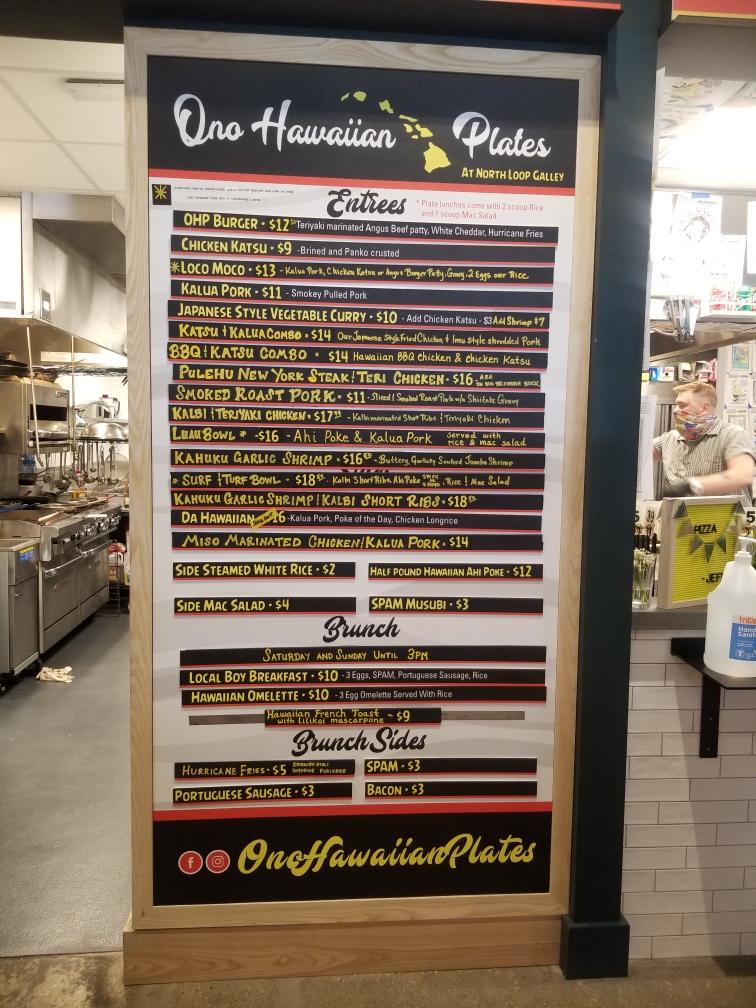 Ono Hawaiian Plates
AT NORTH LOOP GALLEY
Entrees
* Plate lunches come with 2 scoop Rice
and 1 scoop Mac Salad
OHP BURGER • $12 Teriyaki marinated Angus Beef patty, White Cheddar, Hurricane Fries
CHICKEN KATSU • $9 -Brined and Panko crusted
*LOCO MOCO • $13 - Kalua Pork, Chicken Katsu or Angus Burger Patty, Gravy, 2 Eggs over Rice
KALUA PORK • $11 - Smokey Pulled Pork
JAPANESE STYLE VEGETABLE CURRY • $10 - Add Chicken Katsu - $3 Add Shrimp $7
KATSU + KALUA COMBO • $14 Our Japanese Style Fried Chicken & Imu style shredded Pork
BBQ + KATSU COMBO • $14 Hawaiian BBQ chicken & chicken Katsu
PULEHU NEW YORK STEAK + TERI CHICKEN • $16 AKA
SMOKED ROAST PORK • $11 - Sliced & Smoked Roast Pork w/a Shiitake Gravy
KALBI + TERIYAKI CHICKEN • $17 - Kalbi marinated Short Ribs & Teriyaki Chicken
LUAU BOWL * -$16 - Ahi Poke & Kalua Pork served with
rice & mac salad
KAHUKU GARLIC SHRIMP • $16 - Buttery, Garlicky Sauteed Jumbo Shrimp
* SURF + TURF BOWL • $18 - Kalbi Short Ribs, Ahi Poke, Rice & Mac Salad
KAHUKU GARLIC SHRIMP + KALBI SHORT RIBS • $18
DA HAWAIIAN 16 -Kalua Pork, Poke of the Day, Chicken Longrice
MISO MARINATED CHICKEN/KALUA PORK • $14
SIDE STEAMED WHITE RICE • $2
HALF POUND HAWAIIAN AHI POKE • $12
SIDE MAC SALAD • $4
SPAM MUSUBI • $3
Brunch
SATURDAY AND SUNDAY UNTIL 3PM
LOCAL BOY BREAKFAST • $10 - 3 Eggs, SPAM, Portuguese Sausage, Rice
HAWAIIAN OMELETTE • $10 - 3 Egg Omelette Served With Rice
Hawaiian French Toast
with lilikoi mascarpone - $9
Brunch Sides
HURRICANE FRIES • $5
SPAM • $3
PORTUGUESE SAUSAGE • $3
BACON • $3
OnoHawaiianPlates
PIZZA
Hand